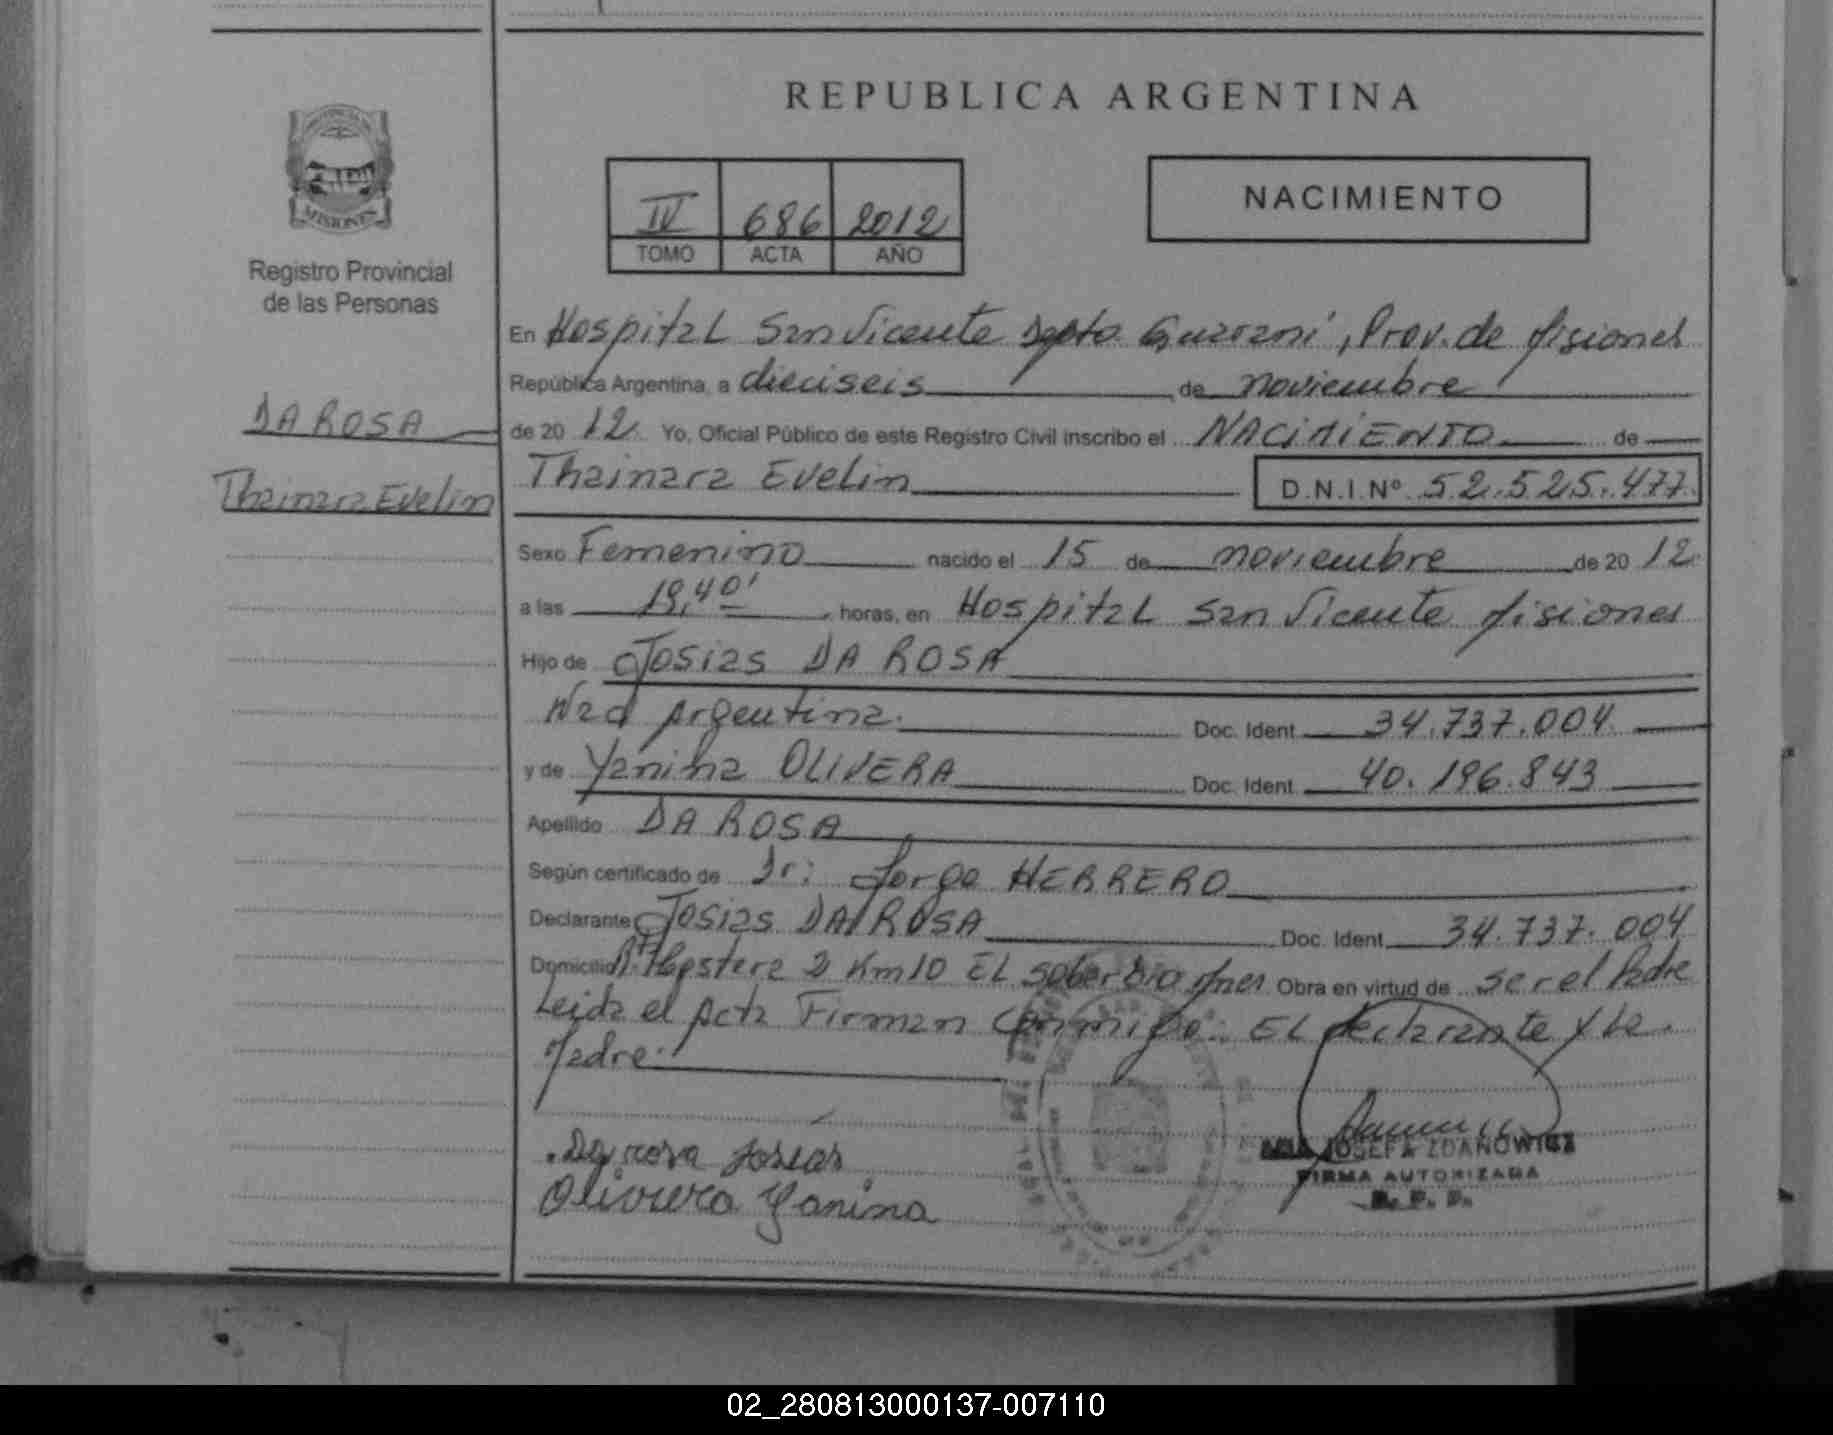 REPUBLICA ARGENTINA
PROVINCIA DE
MISIONES
Registro Provincial
de las Personas
IV 686 2012
TOMO ACTA AÑO
NACIMIENTO
En Hospital San Vicente Dpto Guarani, Prov. de Misiones
República Argentina, a dieciseis de noviembre
DA ROSA
de 2012 Yo, Oficial Público de este Registro Civil inscribo el NACIMIENTO de
Thainara Evelin
Thainara Evelin D.N.I.Nº 52.525.477.
Sexo Femenino nacido el 15 de noviembre de 2012
a las 19,40' horas, en Hospital San Vicente Misiones
Hijo de Josias DA ROSA
Nac Argentina. Doc. Ident. 34.737.004
y de Yanina OLIVERA Doc. Ident. 40.196.843
Apellido DA ROSA
Según certificado de Dr: Jorge HERRERO
Declarante Josias DA ROSA Doc. Ident. 34.737.004
Domicilio 2 Km 10 EL Soberbio Mnes Obra en virtud de ser el Padre
Leida el Acta Firman Conmigo: EL declarante y la
Madre.
Da rosa Josías
Olivera Yanina
JOSEFA ZDANOWICZ
FIRMA AUTORIZADA
R. P. P.
02_280813000137-007110